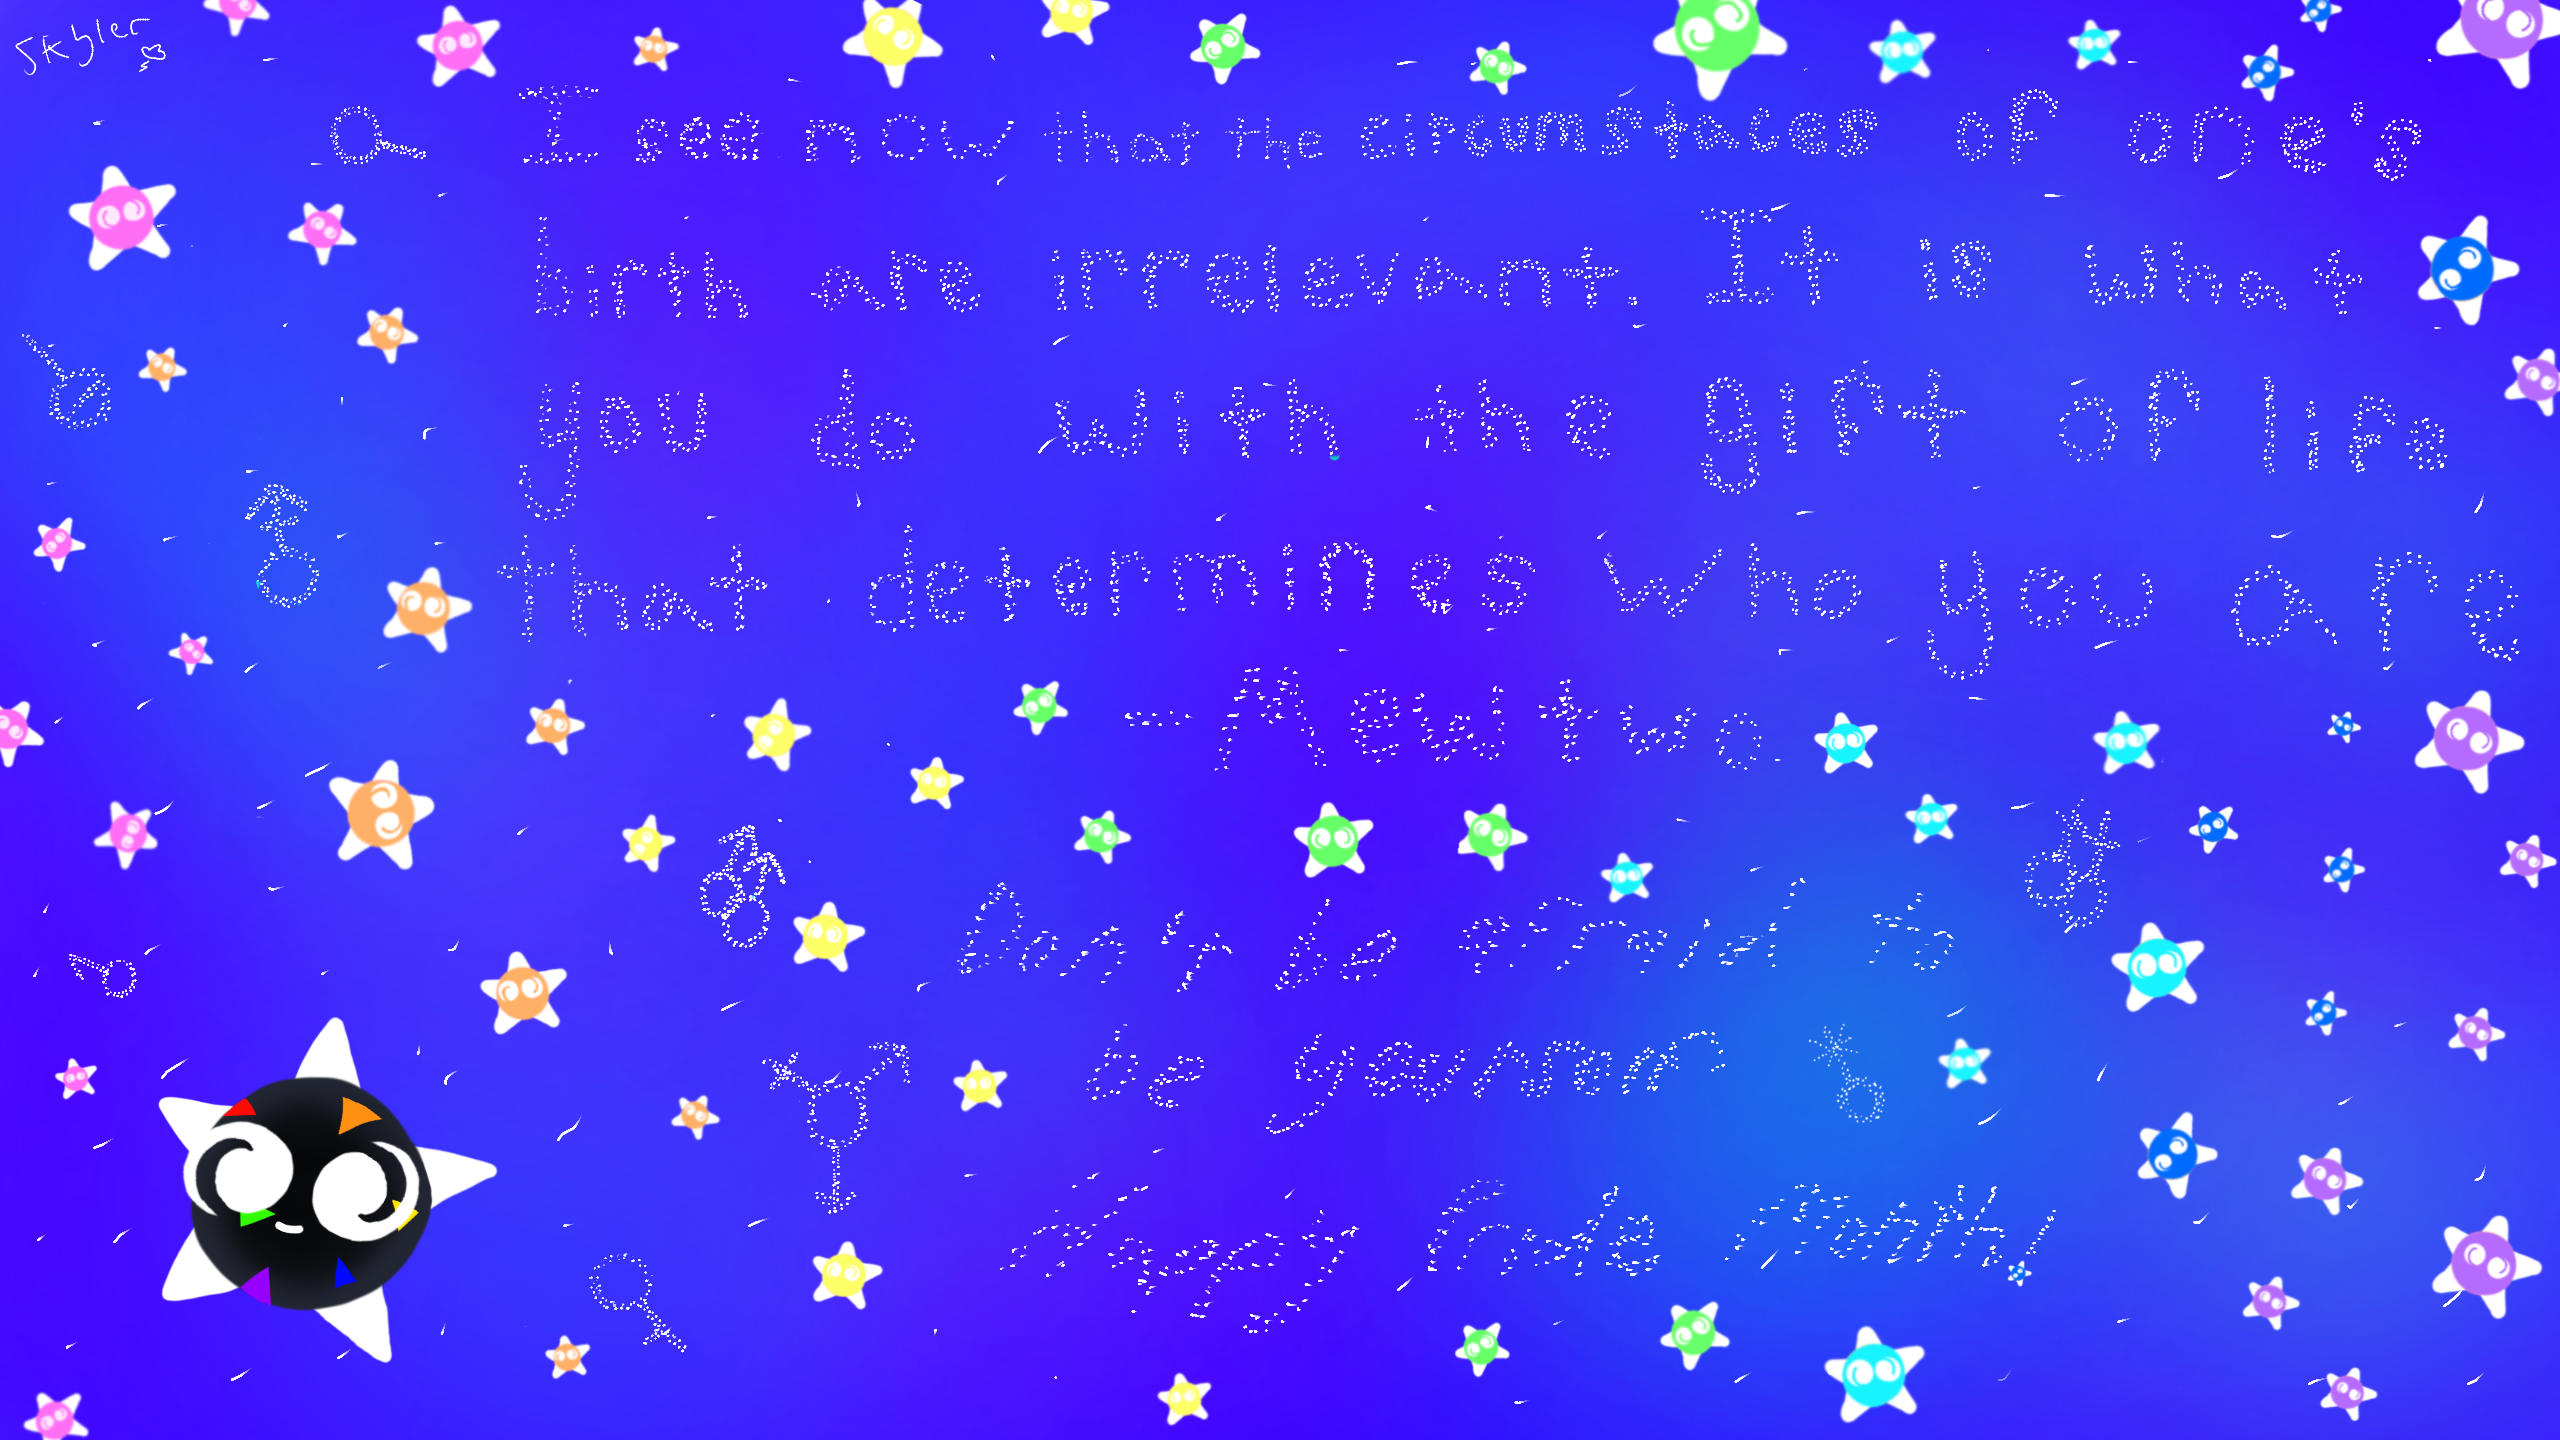 Skyler
I see now that the circumstaces of one's
birth are irrelevant. It is what
you do with the gift of life
that determines who you are
-Mewtwo
Don't be afraid to
be yourself
Happy Pride Month!